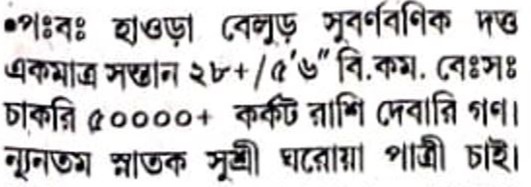 ●পঃবঃ হাওড়া বেলুড় সুবর্ণবণিক দত্ত
একমাত্র সন্তান ২৮+/৫'৬" বি.কম. বেঃসঃ
চাকরি ৫০০০০+ কর্কট রাশি দেবারি গণ।
ন্যূনতম স্নাতক সুশ্রী ঘরোয়া পাত্রী চাই।